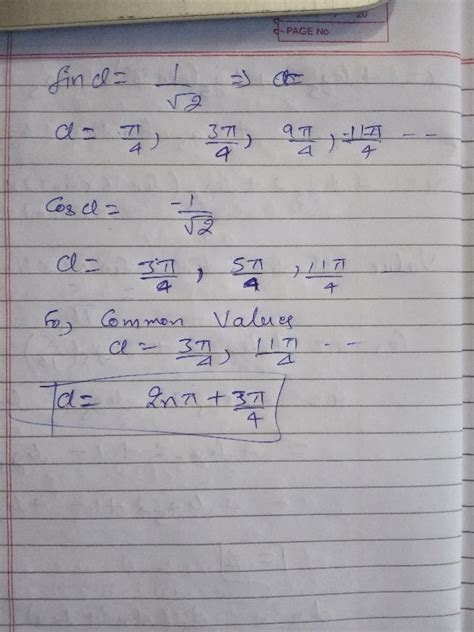 20
PAGE No
Sin α = 1/√2 ⇒ α=
α = π/4, 3π/4, 9π/4, 11π/4 --
Cos α = -1/√2
α = 3π/4, 5π/4, 11π/4
So, Common Values
α = 3π/4, 11π/4 --
α = 2nπ + 3π/4